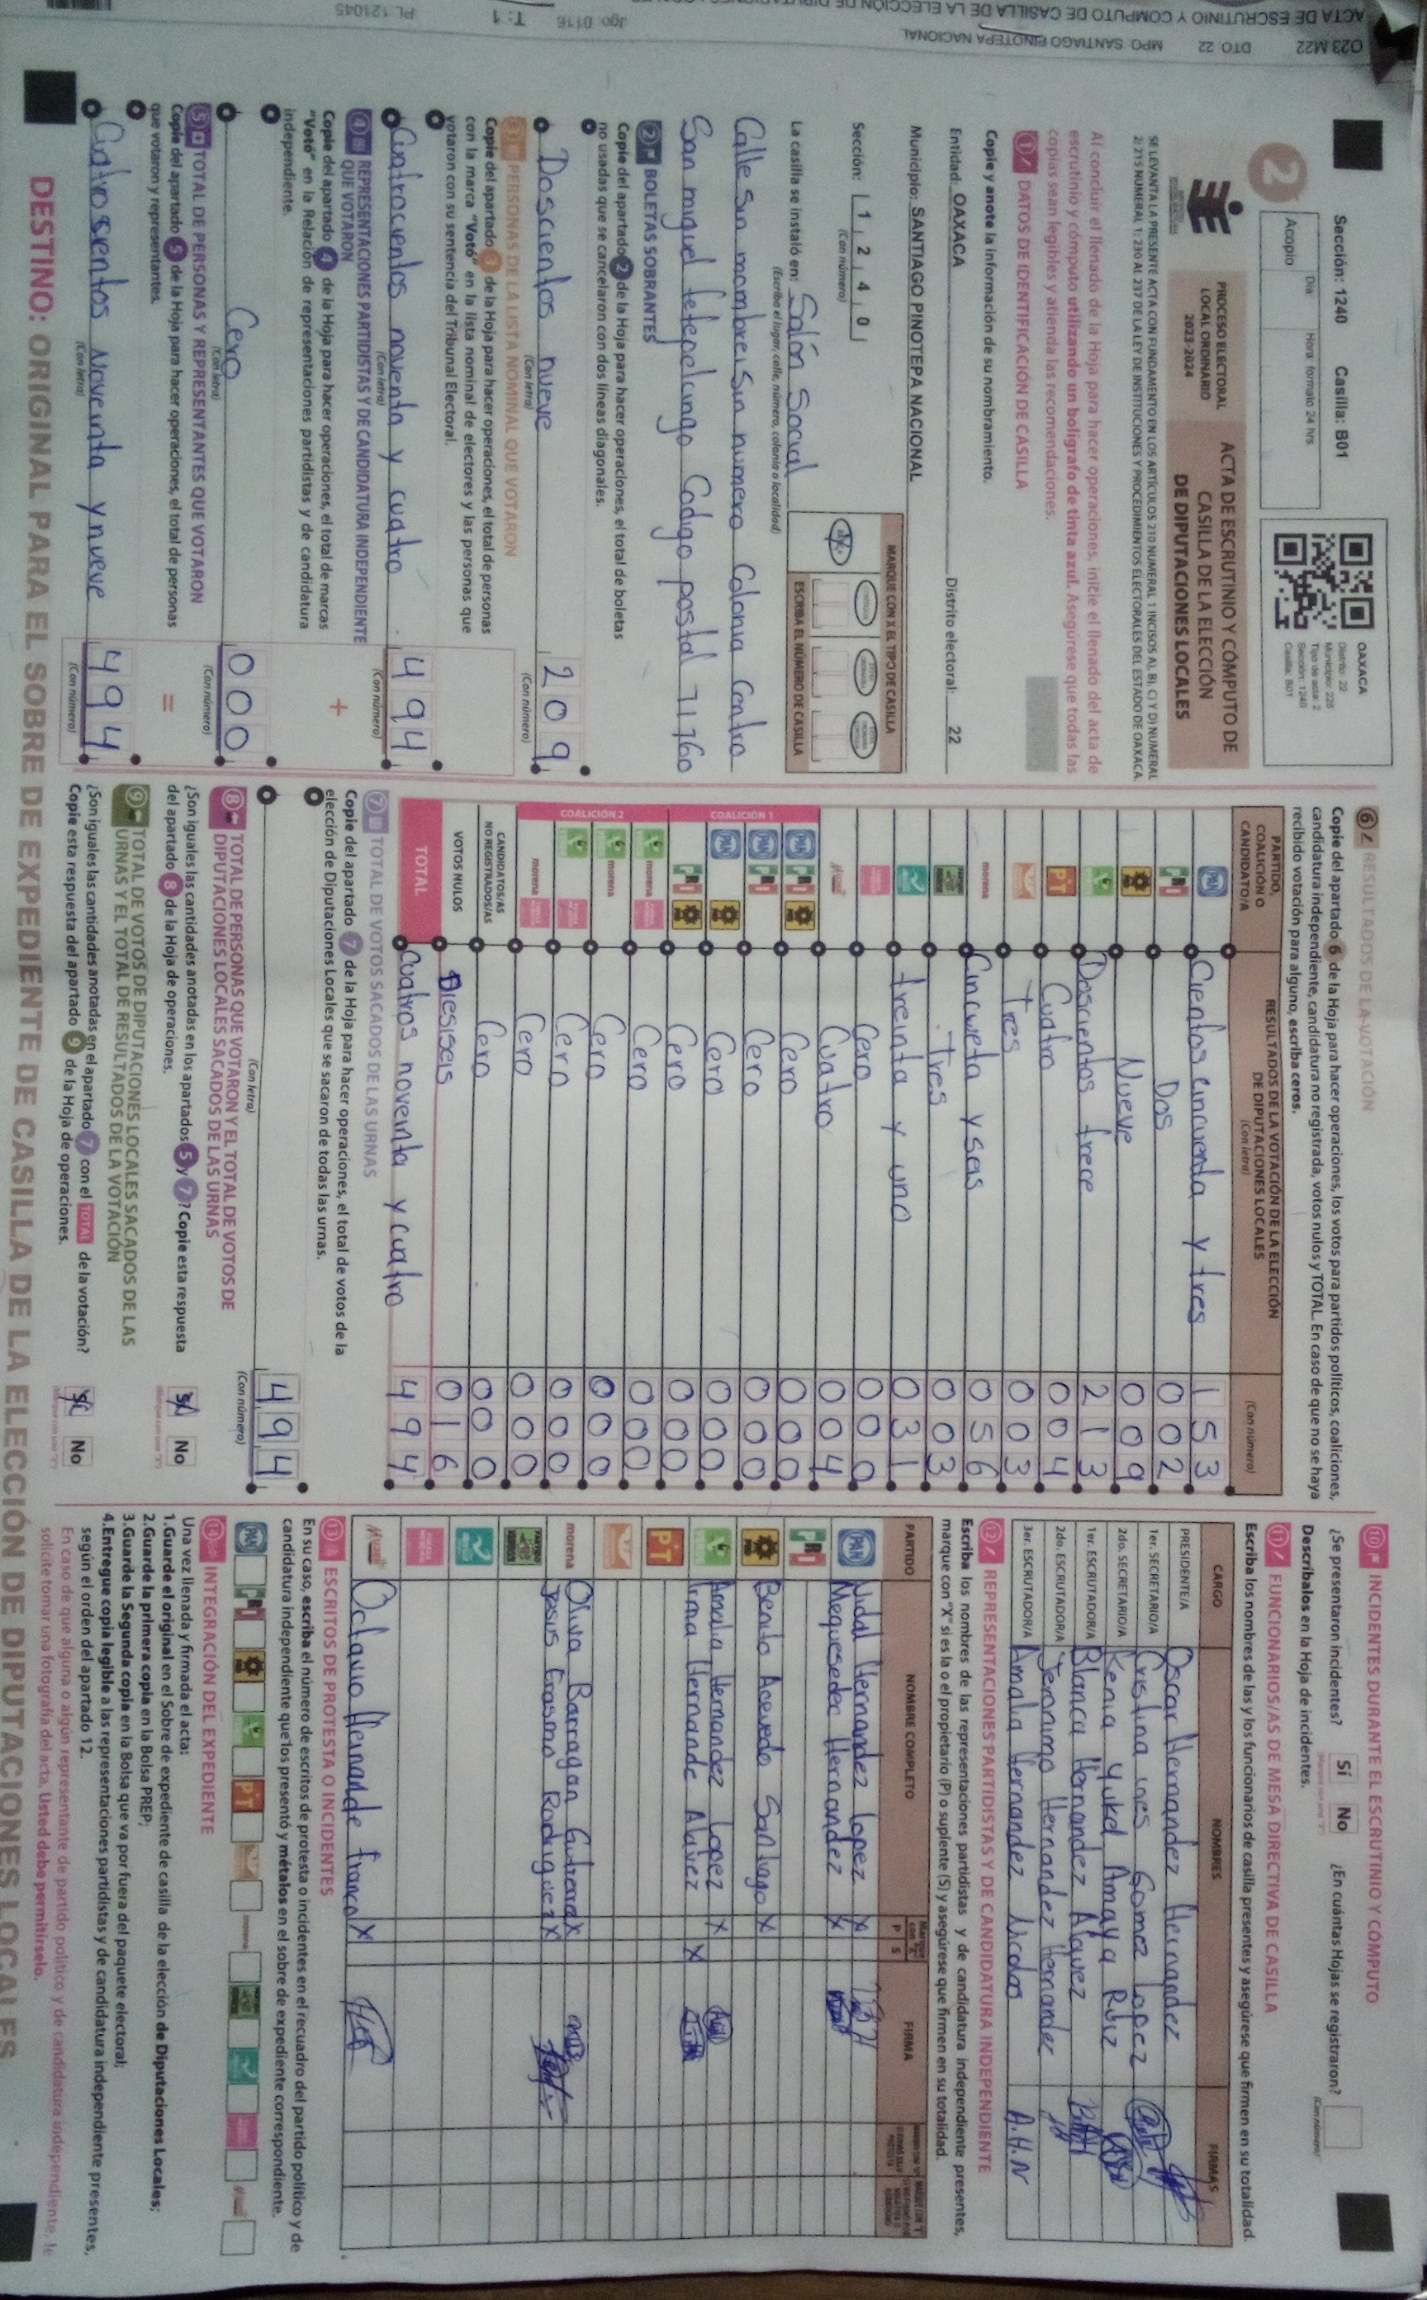 O23 M22 DTO. 22 MPO. SANTIAGO PINOTEPA NACIONAL
Jgo. 0116 T: 1 PL 121045
Sección: 1240 Casilla: B01
2
Día Hora: formato 24 hrs.
Acopio
OAXACA
Distrito: 22
Tipo de acta: 2
Sección: 1240
Casilla: B01
PROCESO ELECTORAL
LOCAL ORDINARIO
2023-2024
ACTA DE ESCRUTINIO Y CÓMPUTO DE
CASILLA DE LA ELECCIÓN
DE DIPUTACIONES LOCALES
SE LEVANTA LA PRESENTE ACTA CON FUNDAMENTO EN LOS ARTÍCULOS 210 NUMERAL 1 INCISOS A), B), C) Y D) NUMERAL
2; 215 NUMERAL 1; 230 AL 237 DE LA LEY DE INSTITUCIONES Y PROCEDIMIENTOS ELECTORALES DEL ESTADO DE OAXACA.
Al concluir el llenado de la Hoja para hacer operaciones, inicie el llenado del acta de
escrutinio y cómputo utilizando un bolígrafo de tinta azul. Asegúrese que todas las
copias sean legibles y atienda las recomendaciones.
1 DATOS DE IDENTIFICACIÓN DE CASILLA
Copie y anote la información de su nombramiento.
Entidad: OAXACA Distrito electoral: 22
Municipio: SANTIAGO PINOTEPA NACIONAL
Sección: 1 2 4 0
(Con número)
MARQUE CON X EL TIPO DE CASILLA
ESCRIBA EL NÚMERO DE CASILLA
La casilla se instaló en: Salón Social
(Escriba el lugar, calle, número, colonia o localidad)
Calle sin nombrei Sin numero Colonia Centro
San miguel tetepelcingo Codigo postal 71760
2 BOLETAS SOBRANTES
Copie del apartado 2 de la Hoja para hacer operaciones, el total de boletas
no usadas que se cancelaron con dos líneas diagonales.
Doscientos nueve 209
(Con letra) (Con número)
3 PERSONAS DE LA LISTA NOMINAL QUE VOTARON
Copie del apartado 3 de la Hoja para hacer operaciones, el total de personas
con la marca "Votó" en la lista nominal de electores y las personas que
votaron con su sentencia del Tribunal Electoral.
Cuatrocientos noventa y cuatro 494
(Con letra) (Con número)
4 REPRESENTACIONES PARTIDISTAS Y DE CANDIDATURA INDEPENDIENTE
QUE VOTARON
Copie del apartado 4 de la Hoja para hacer operaciones, el total de marcas
"Votó" en la Relación de representaciones partidistas y de candidatura
independiente.
+
Cero 000
(Con letra) (Con número)
5 TOTAL DE PERSONAS Y REPRESENTANTES QUE VOTARON
Copie del apartado 5 de la Hoja para hacer operaciones, el total de personas
que votaron y representantes.
=
Cuatrosientos Noventa y nueve 494
(Con letra) (Con número)
6 RESULTADOS DE LA VOTACIÓN
Copie del apartado 6 de la Hoja para hacer operaciones, los votos para partidos políticos, coaliciones,
candidatura independiente, candidatura no registrada, votos nulos y TOTAL. En caso de que no se haya
recibido votación para alguno, escriba ceros.
PARTIDO, COALICIÓN O CANDIDATO/A RESULTADOS DE LA VOTACIÓN DE LA ELECCIÓN DE DIPUTACIONES LOCALES (Con letra) (Con número)
PAN Cientos cincuenta y tres 153
PRI Dos 002
PRD Nueve 009
Doscientos trece 213
PT Cuatro 004
Tres 003
morena Cincuenta y seis 056
Tres 003
treinta y uno 031
Cero 000
Cuatro 004
COALICIÓN 1
PAN PRI PRD Cero 000
PAN PRI Cero 000
PAN PRD Cero 000
PRI PRD Cero 000
COALICIÓN 2
morena Cero 000
morena Cero 000
Cero 000
morena Cero 000
CANDIDATOS/AS NO REGISTRADOS/AS Cero 000
VOTOS NULOS Diesiseis 016
TOTAL Cuatros noventa y cuatro 494
7 TOTAL DE VOTOS SACADOS DE LAS URNAS
Copie del apartado 7 de la Hoja para hacer operaciones, el total de votos de la
elección de Diputaciones Locales que se sacaron de todas las urnas.
494
(Con letra) (Con número)
8 TOTAL DE PERSONAS QUE VOTARON Y EL TOTAL DE VOTOS DE
DIPUTACIONES LOCALES SACADOS DE LAS URNAS
¿Son iguales las cantidades anotadas en los apartados 5 y 7? Copie esta respuesta
del apartado 8 de la Hoja de operaciones.
Sí No
9 TOTAL DE VOTOS DE DIPUTACIONES LOCALES SACADOS DE LAS
URNAS Y EL TOTAL DE RESULTADOS DE LA VOTACIÓN
¿Son iguales las cantidades anotadas en el apartado 7 con el TOTAL de la votación?
Copie esta respuesta del apartado 9 de la Hoja de operaciones.
Sí No
10 INCIDENTES DURANTE EL ESCRUTINIO Y CÓMPUTO
¿Se presentaron incidentes? Sí No ¿En cuántas Hojas se registraron?
(Con número)
Descríbalos en la Hoja de incidentes.
11 FUNCIONARIOS/AS DE MESA DIRECTIVA DE CASILLA
Escriba los nombres de las y los funcionarios de casilla presentes y asegúrese que firmen en su totalidad.
CARGO NOMBRES FIRMAS
PRESIDENTE/A Oscar Hernandez Hernandez
1er. SECRETARIO/A Cristina ines Gomez Lopez
2do. SECRETARIO/A Kenia Yukel Amaya Ruiz
1er. ESCRUTADOR/A Blanca Hernandez Alquez
2do. ESCRUTADOR/A Jeronimo Hernandez Hernandez
3er. ESCRUTADOR/A Amalia Hernandez Nicolas A.H.N
12 REPRESENTACIONES PARTIDISTAS Y DE CANDIDATURA INDEPENDIENTE
Escriba los nombres de las representaciones partidistas y de candidatura independiente presentes,
marque con "X" si es la o el propietario (P) o suplente (S) y asegúrese que firmen en su totalidad.
PARTIDO NOMBRE COMPLETO P S FIRMA
PAN Vidal Hernandez Lopez X
Mequesedec Hernandez X
PRI
PRD Benito Acevedo Santiago X
Amalia Hernandez Lopez X
Irma Hernande Alavez X
PT
morena Oliva Barragan Gutierrez X
Jesus Erasmo Rodriguez X
Octavio Hernande franco X
13 ESCRITOS DE PROTESTA O INCIDENTES
En su caso, escriba el número de escritos de protesta o incidentes en el recuadro del partido político y de
candidatura independiente que los presentó y métalos en el sobre de expediente correspondiente.
PAN PRI PRD PT morena
14 INTEGRACIÓN DEL EXPEDIENTE
Una vez llenada y firmada el acta:
1.Guarde el original en el Sobre de expediente de casilla de la elección de Diputaciones Locales;
2.Guarde la primera copia en la Bolsa PREP;
3.Guarde la Segunda copia en la Bolsa que va por fuera del paquete electoral;
4.Entregue copia legible a las representaciones partidistas y de candidatura independiente presentes,
según el orden del apartado 12.
En caso de que alguna o algún representante de partido político y de candidatura independiente, le
solicite tomar una fotografía del acta. Usted debe permitírselo.
DESTINO: ORIGINAL PARA EL SOBRE DE EXPEDIENTE DE CASILLA DE LA ELECCIÓN DE DIPUTACIONES LOCALES